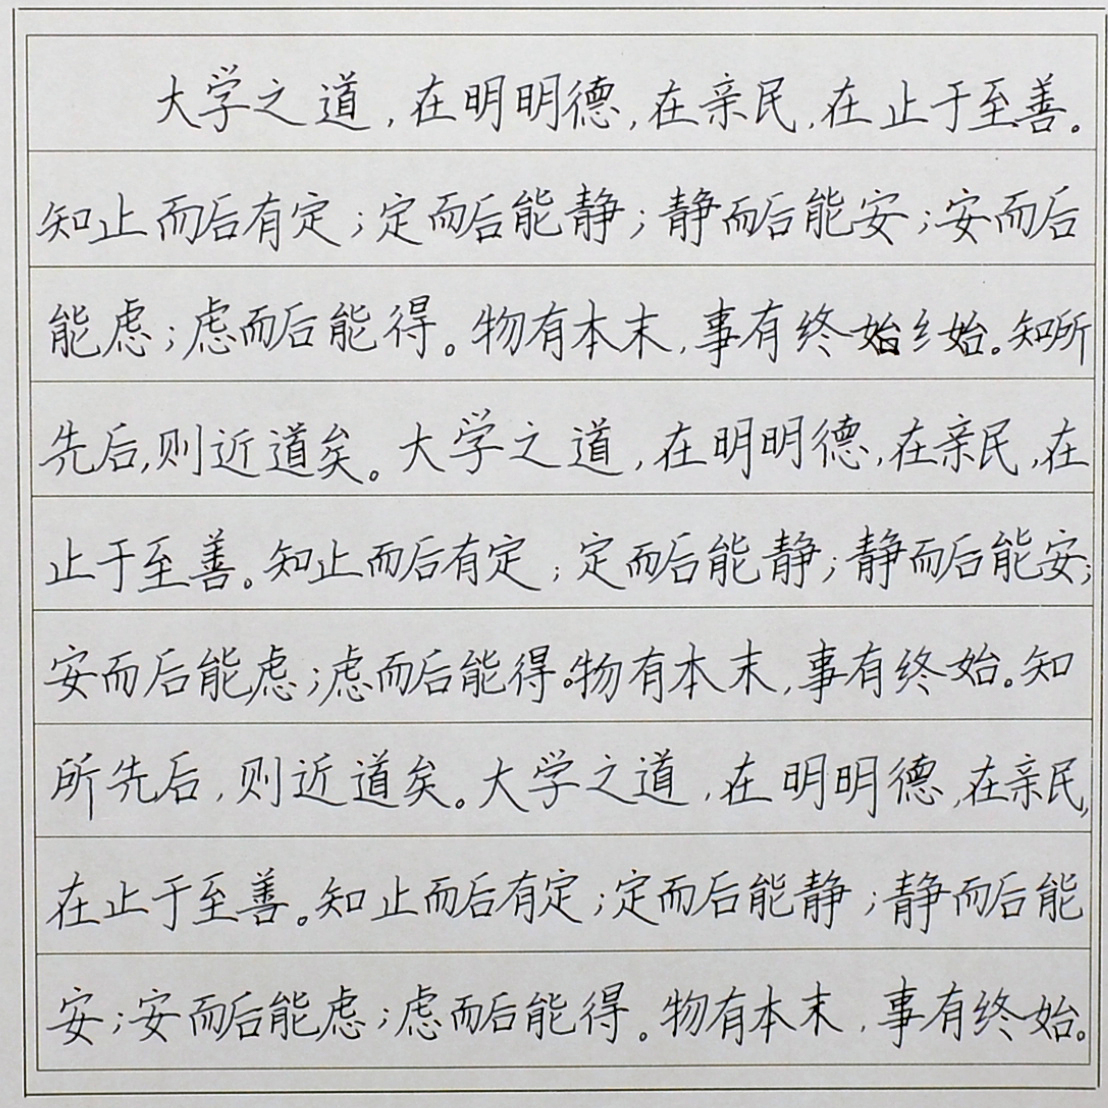 大学之道,在明明德,在亲民,在止于至善。
知止而后有定;定而后能静;静而后能安;安而后
能虑;虑而后能得。物有本末,事有终始纟始。知所
先后,则近道矣。大学之道,在明明德,在亲民,在
止于至善。知止而后有定;定而后能静;静而后能安;
安而后能虑;虑而后能得。物有本末,事有终始。知
所先后,则近道矣。大学之道,在明明德,在亲民,
在止于至善。知止而后有定;定而后能静;静而后能
安;安而后能虑;虑而后能得。物有本末,事有终始。